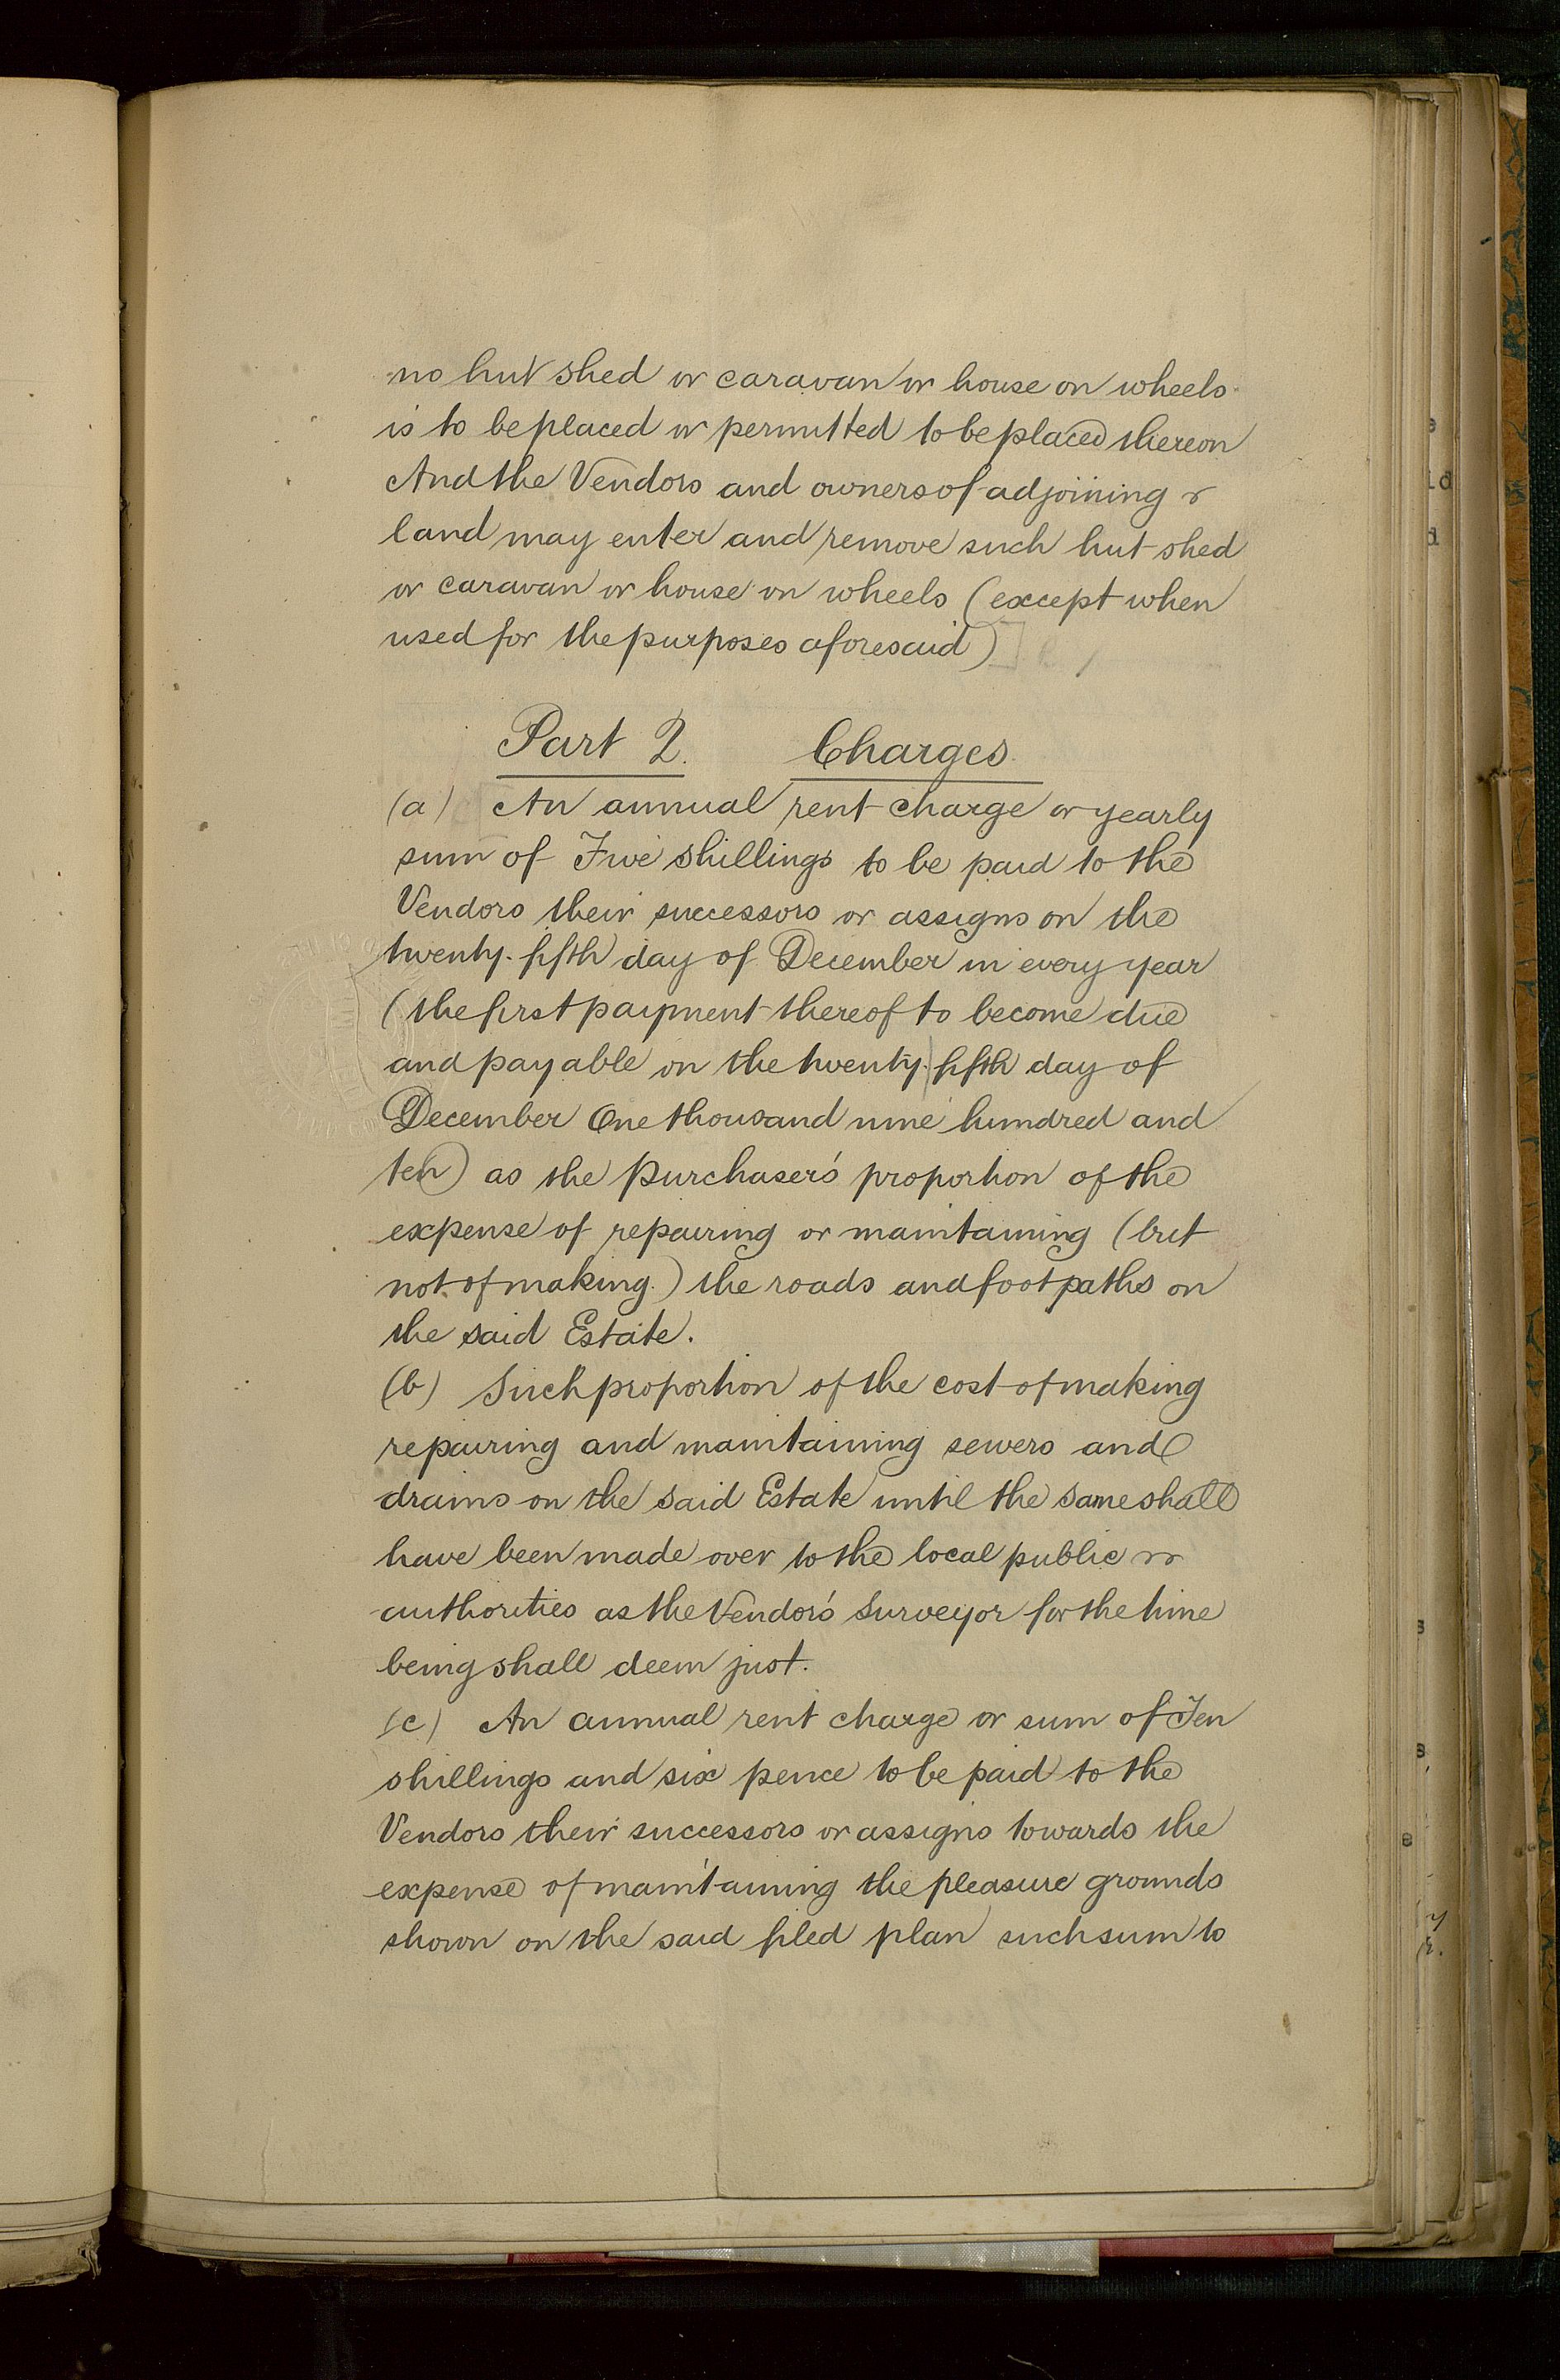 no hut shed or caravan or house on wheels
is to be placed or permitted to be placed thereon
And the Vendors and owners of adjoining
land may enter and remove such hut shed
or caravan or house on wheels (except when
used for the purposes aforesaid)
Part 2. Charges.
(a) An annual rent charge or yearly
sum of Five shillings to be paid to the
Vendors their successors or assigns on the
twenty-fifth day of December in every year
(the first payment thereof to become due
and payable on the twenty-fifth day of
December One thousand nine hundred and
ten) as the Purchaser's proportion of the
expense of repairing or maintaining (but
not of making.) the roads and footpaths on
the said Estate.
(b) Such proportion of the cost of making
repairing and maintaining sewers and
drains on the said Estate until the same shall
have been made over to the local public
authorities as the Vendor's Surveyor for the time
being shall deem just.
(c) An annual rent charge or sum of Ten
shillings and six pence to be paid to the
Vendors their successors or assigns towards the
expense of maintaining the pleasure grounds
shown on the said filed plan such sum to